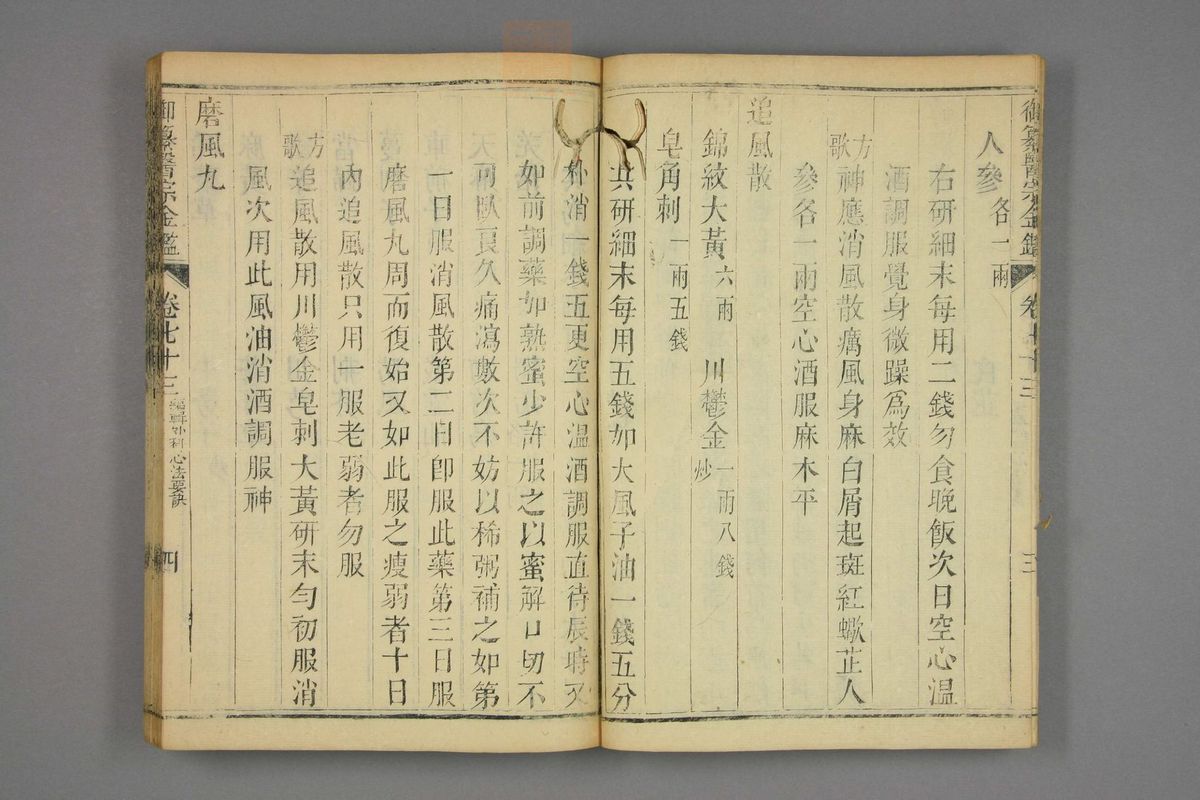 御纂醫宗金鑑 卷七十三 三
人參各一兩
右研細末每用二錢勿食晚飯次日空心溫
酒調服覺身微躁爲效
方歌 神應消風散癘風身麻白屑起斑紅蠍芷人
參各一兩空心酒服麻木平
追風散
錦紋大黃六兩 川鬱金炒一兩八錢
皂角刺一兩五錢
共研細末每用五錢加大風子油一錢五分
朴消一錢五更空心溫酒調服直待辰時又
如前調藥加熟蜜少許服之以蜜解口切不
可臥良久痛瀉數次不妨以稀粥補之如第
一日服消風散第二日卽服此藥第三日服
磨風丸周而復始又如此服之瘦弱者十日
內追風散只用一服老弱者勿服
方歌 追風散用川鬱金皂刺大黃研末勻初服消
風次用此風油消酒調服神
磨風丸
御纂醫宗金鑑 卷七十三 編輯外科心法要訣 四